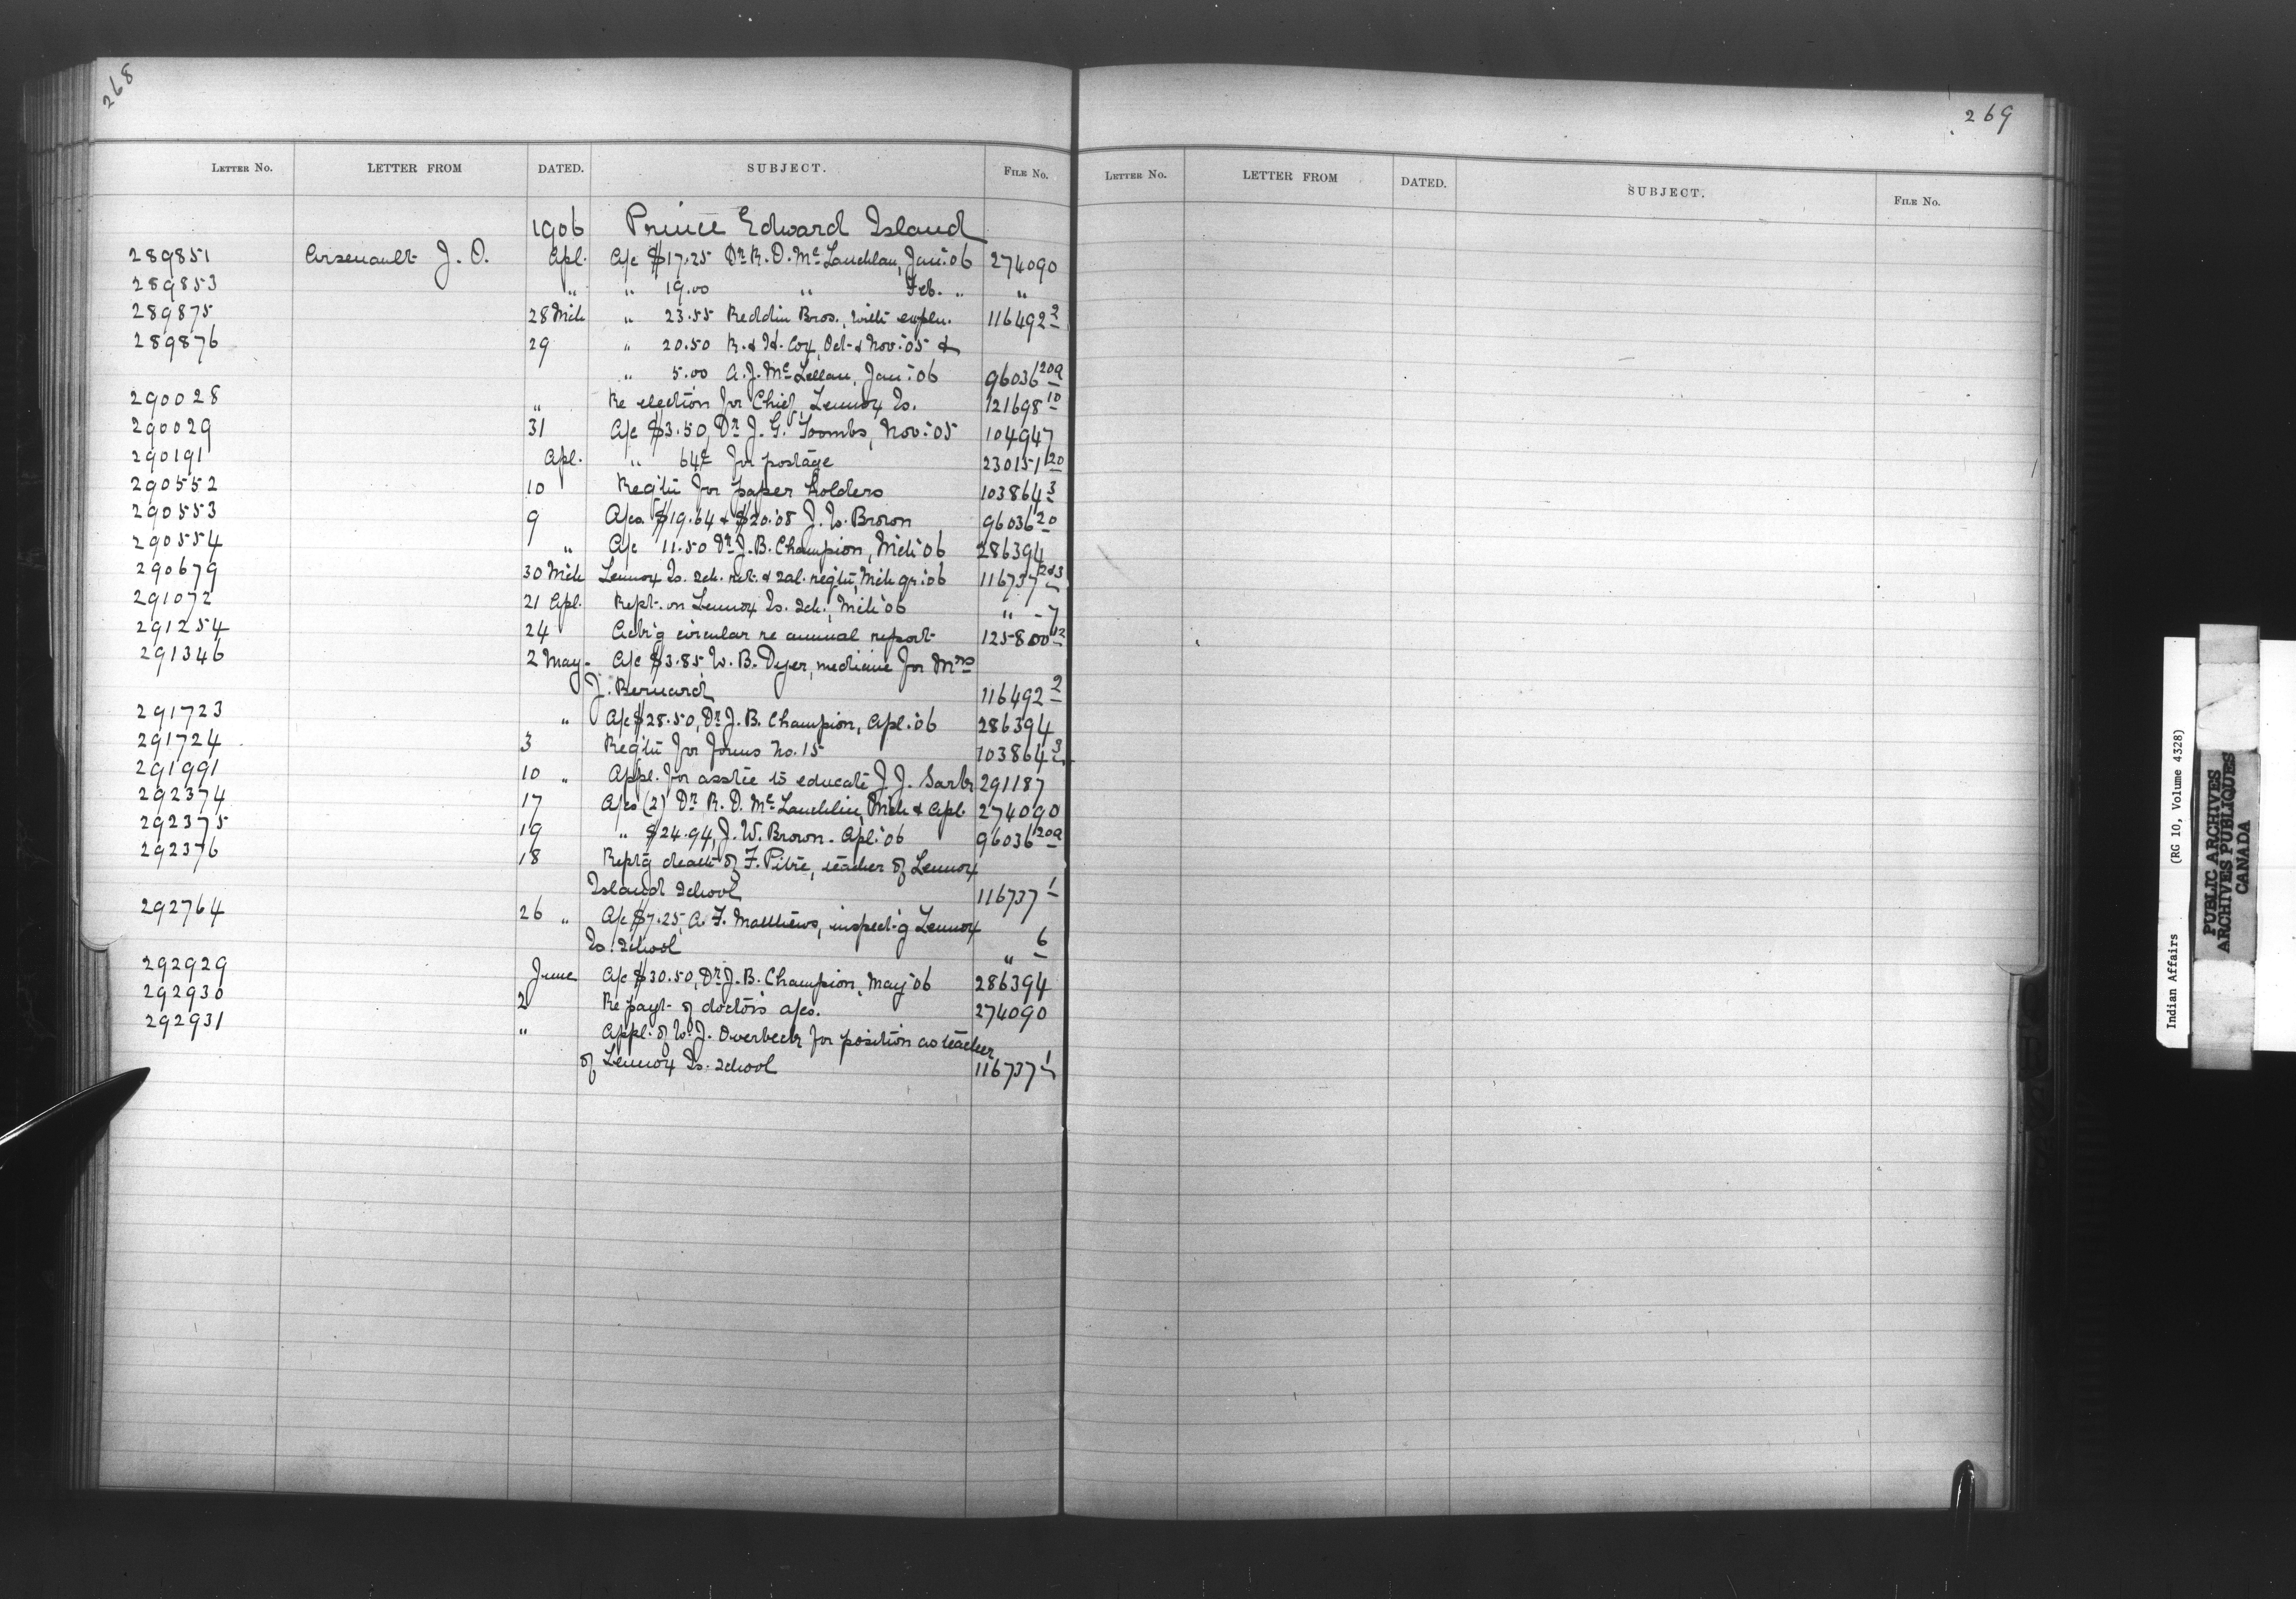 268
LETTER NO. LETTER FROM DATED. SUBJECT. FILE NO.
1906 Prince Edward Island
289851 Arsenault J. O. Apl. A/c $17.25 Dr. R. D. McLauchlan, Jan. '06 274090
289853 " " 19.00 " Feb. " "
289875 28 Mch " 23.55 Reddin Bros., with expln. 116492 2
289876 29 " 20.50 R. & H. Cox, Oct. & Nov. '05 &
" 5.00 A. J. McLellan, Jan. '06 96036 20a
290028 " Re election for Chief, Lennox Is. 121698 10
290029 31 A/c $3.50, Dr. J. G. Toombs, Nov. '05 104947
290191 Apl. " 64¢ for postage 230151 120
290552 10 Reqtn for paper holders 103864 3
290553 9 A/cs. $19.64 & $20.08 J. W. Brown 96036 20
290554 " A/c 11.50 Dr. J. B. Champion, Mch '06 286394
290679 30 Mch Lennox Is. Sch. ret. & sal. reqtn, Mch qr. '06 116737 2&3
291072 21 Apl. Rept. on Lennox Is. Sch., Mch '06 " - 7
291254 24 Ackn'g circular re annual report 125800 12
291346 2 May - A/c $3.85, W. B. Dyer, medicine for Mrs
J. Bernard 116492 2
291723 " A/c $28.50, Dr. J. B. Champion, Apl. '06 286394
291724 3 Reqtn for forms No. 15 103864 3
291991 10 " Appl. for asstce to educate J. J. Sark 291187
292374 17 A/cs (2) Dr. R. D. McLauchlin, Mch & Apl. 274090
292375 19 " $24.94, J. W. Brown - Apl. '06 96036 20a
292376 18 Rept'g death of F. Pitre, teacher of Lennox
Island School 116737 1
292764 26 " A/c $7.25, A. F. Matthews, inspect'g Lennox
Is. School " 6
292929 June A/c $30.50, Dr. J. B. Champion, May '06 286394
292930 2 Re payt. of doctors a/cs. 274090
292931 " Appl. of W. J. Overbeck for position as teacher
of Lennox Is. School 116737 1
269
LETTER NO. LETTER FROM DATED. SUBJECT. FILE NO.
Indian Affairs (RG 10, Volume 4328)
PUBLIC ARCHIVES
ARCHIVES PUBLIQUES
CANADA